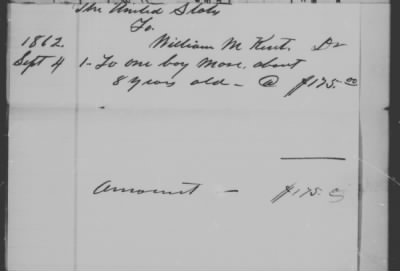 The United States
To.
1862. William M Kent. Dr
Sept 4 1- To one boy Mose. about
8 years old - @ $175.00
Amount - $175.00